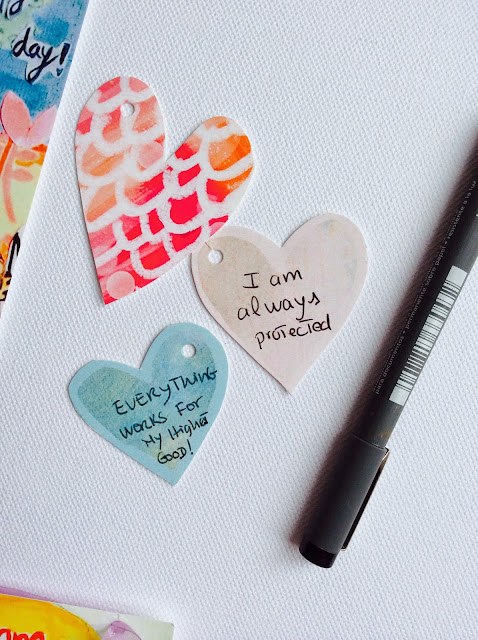 day!
I am
always
protected
EVERYTHING
WORKS FOR
My Higher
GOOD!